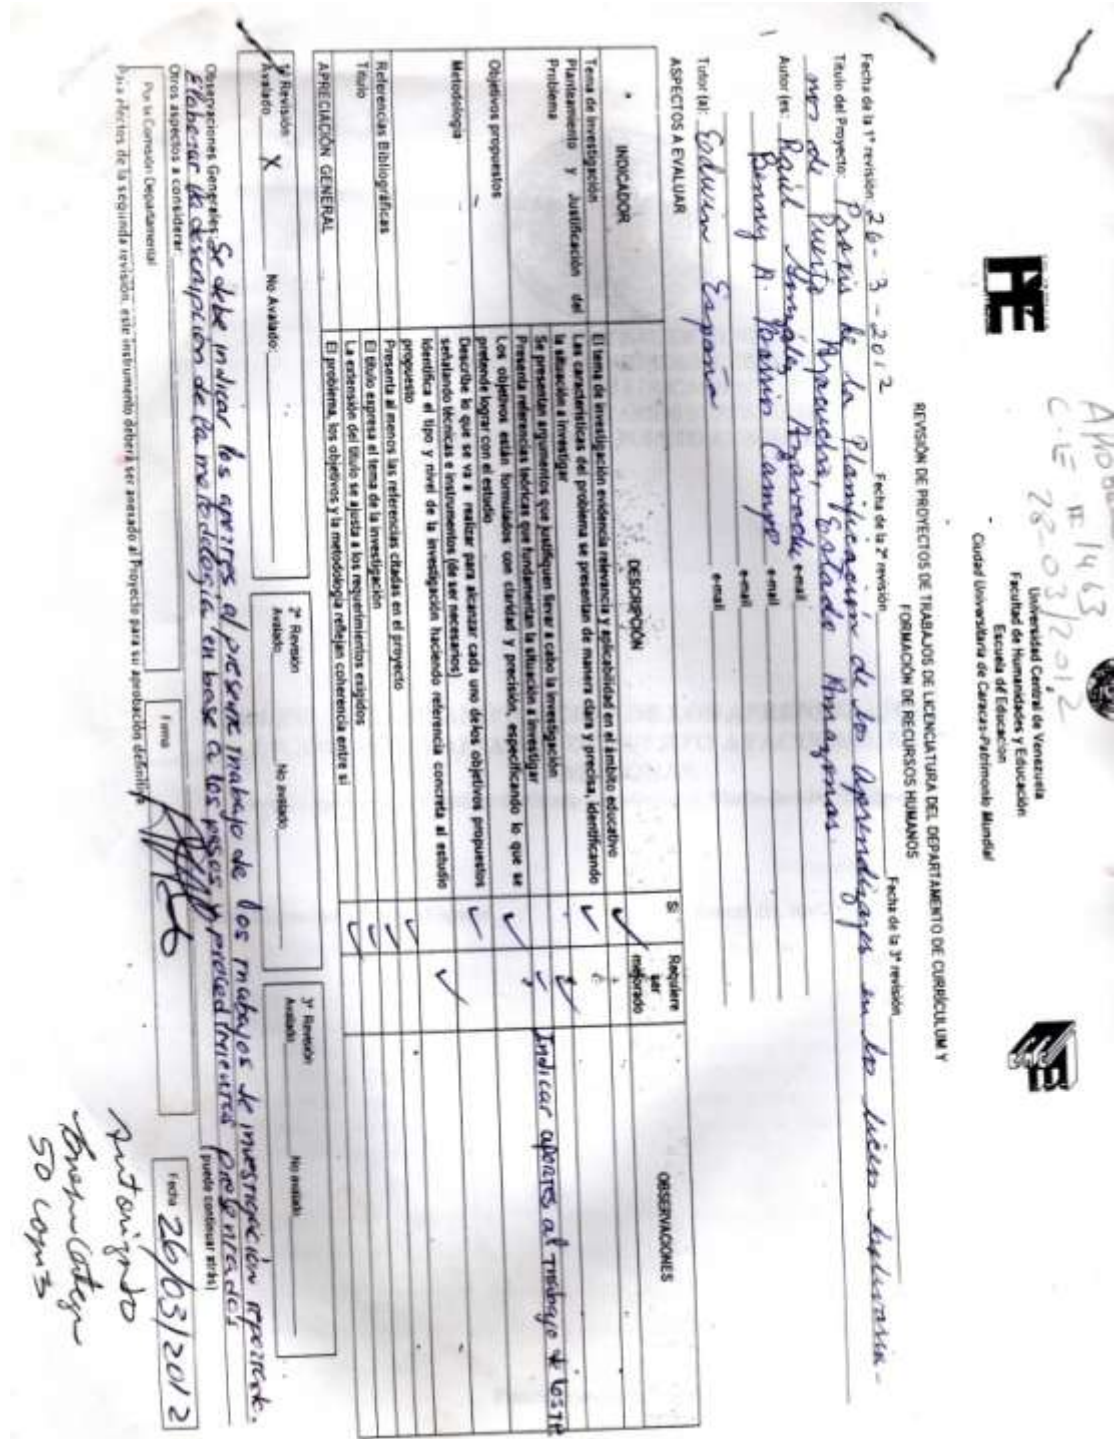 C.E # 1463
28-03/2012
Universidad Central de Venezuela
Facultad de Humanidades y Educación
Escuela de Educación
Ciudad Universitaria de Caracas-Patrimonio Mundial
REVISIÓN DE PROYECTOS DE TRABAJOS DE LICENCIATURA DEL DEPARTAMENTO DE CURRÍCULUM Y
FORMACIÓN DE RECURSOS HUMANOS
Fecha de la 1ª revisión: 26-3-2012 Fecha de la 2ª revisión Fecha de la 3ª revisión
Título del Proyecto: Praxis de la Planificación de los Aprendizajes en los liceos bolivaria-
nos de Puerto Ayacucho, Estado Amazonas.
Autor (es: Raúl González e-mail
Benny A. Campo e-mail
e-mail
Tutor (a): Edwin España e-mail
ASPECTOS A EVALUAR
INDICADOR DESCRIPCIÓN Si Requiere ser mejorado OBSERVACIONES
Tema de investigación El tema de investigación evidencia relevancia y aplicabilidad en el ámbito educativo
Planteamiento y Justificación del Problema Las características del problema se presentan de manera clara y precisa, identificando
la situación a investigar
Se presentan argumentos que justifiquen llevar a cabo la investigación
Presenta referencias teóricas que fundamentan la situación a investigar Indicar aportes al trabajo de los
Objetivos propuestos Los objetivos están formulados con claridad y precisión, especificando lo que se
pretende lograr con el estudio
Metodología Describe lo que se va a realizar para alcanzar cada uno de los objetivos propuestos
señalando técnicas e instrumentos (de ser necesarios)
Identifica el tipo y nivel de la investigación haciendo referencia concreta al estudio
propuesto
Referencias Bibliográficas Presenta al menos las referencias citadas en el proyecto
Título El título expresa el tema de la investigación
La extensión del título se ajusta a los requerimientos exigidos
APRECIACIÓN GENERAL El problema, los objetivos y la metodología reflejan coherencia entre sí
1ª Revisión: 2ª Revisión 3ª Revisión
Avalado X No Avalado: Avalado No avalado Avalado No avalado
Observaciones Generales: Se debe indicar los aportes al presente trabajo de los trabajos de investigación reportado.
Elaborar la descripción de la metodología en base a los pasos y procedimientos presentados
Otros aspectos a considerar (puede continuar atrás)
Por la Comisión Departamental Firma Fecha 26/03/2012
Para efectos de la segunda revisión, este instrumento deberá ser anexado al Proyecto para su aprobación definitiva
Autorizado
50 copias